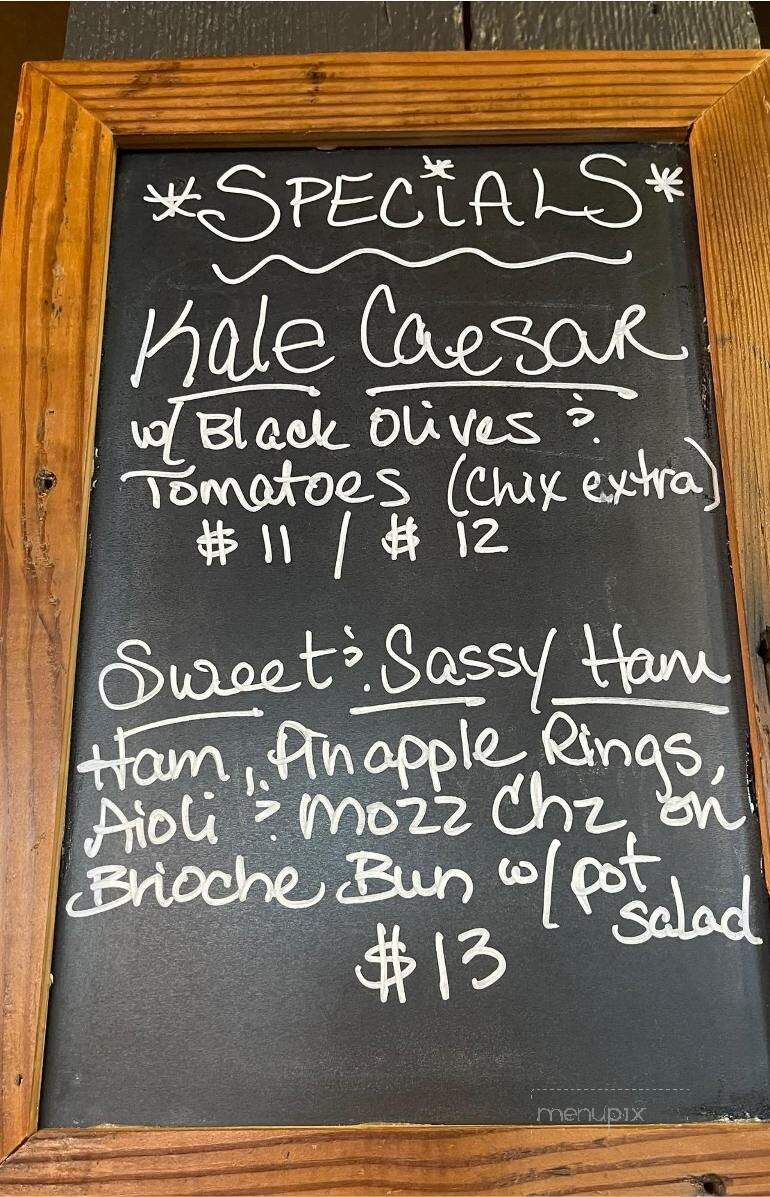 *SPECiALS*
Kale Caesar
w/ Black Olives &
Tomatoes (Chix extra)
$11 / $12
Sweet & Sassy Ham
Ham, Pinapple Rings,
Aioli & Mozz Chz on
Brioche Bun w/ pot
salad
$13
menupix